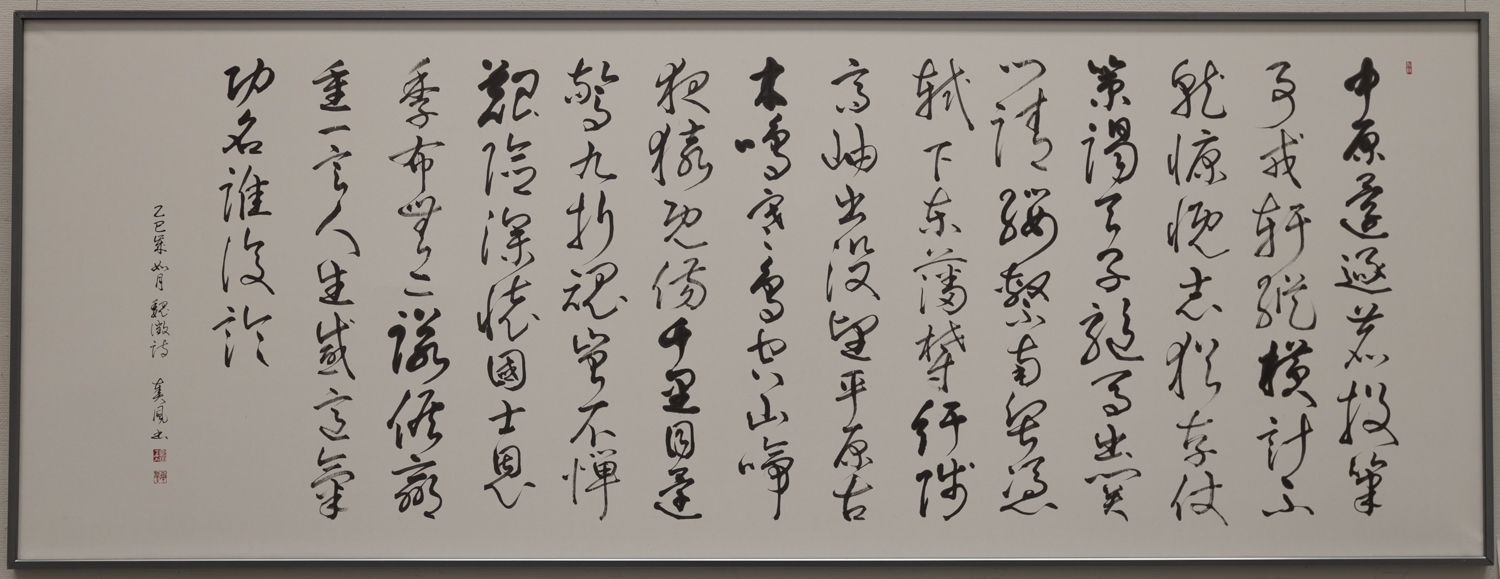 中原還逐鹿投筆
事戎軒縱橫計不
就慷慨志猶存仗
策謁天子驅馬出關
門請纓繫南粤憑
軾下東藩欝紆陟
高岫出没望平原古
木鳴寒鳥空山啼
夜猿既傷千里目還
驚九折魂豈不憚
艱險深懷國士恩
季布無二諾侯嬴
重一言人生感意氣
功名誰復論
乙巳 如月 魏徴詩 風書